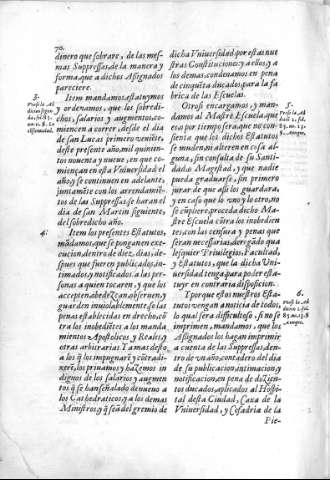 70.
dinero que sobrare, de las mes-
mas Suppressas, de la manera y
forma, que a dichos Assignados
pareciere.
3.
Item mandamos, estatuymos
y ordenamos, que los sobredi-
chos, salarios y augmentos, co-
miencen a correr desde el dia
de san Lucas primero veniente,
deste presente año, mil quinien-
tos nouenta y nueue, en que co-
miençan en esta Vniuersidad el
año, y se continuen en adelante,
juntamēte con los arrendamiē-
tos de las Suppressas, se haran el
dia de san Martin siguiente,
del sobredicho año.
4.
Item los presentes Estatutos,
mādamos, que se pongan en exe-
cucion, dentro de diez, dias, des-
pues que fueren publicados, in-
timados, y notificados, a las per-
sonas a quien tocaren, y que los
accepten, abedezcan, obseruen, y
guarden inuiolablemente, so las
penas establecidas en drecho, cō
tra los inobediētes a los manda
mientos Apostolicos y Reales, y
otras arbitrarias. Y a mas desto,
a los q̃ los impugnarē y cōtradi-
xerē, los priuamos y hazemos in
dignos de los salarios y augmen
tos q̃ se han señalado de nueuo a
los Cathedraticos, y a los demas
Ministros, y q̃ seā del gremio de
dicha Vniuersidad, por estas nue
stras Constituciones: y a ellos, y a
los demas, condenamos en pena
de cinquēta ducados, para la fa
brica de las Escuelas.
5.
Otrosi encargamos, y man-
damos al Maestre Escuela, que es
o por tiempo sera, que no con-
sienta que los dichos Estatutos
se muden, ni alteren en cosa al-
guna, sin consulta de su Santi-
dad, o Magestad, y que nadie
pueda graduarse, sin primero
jurar de que assi los guardara,
y en caso que lo vno, y lo otro, no
se cūpliere, proceda dicho Ma-
estre Escuela cōtra los inobediē-
tes, con las censuras y penas que
seran necessarias, derogādo qua
lesquier Priuilegios, Facultad,
y Estatutos, que la dicha Vni-
uersidad tenga, para poder esta-
tuyr en contraria disposicion.
6.
Y porque estos nuestros Esta-
tutos vengan a noticia de todos,
lo qual sera difficultoso, si no se
imprimen, mandamos, que los
Assignados los hagan imprimir
a cuenta de las Suppressas, den-
tro de vn año, contadero del dia
de su publicacion, intimacion, y
notificacion, en pena de dozien-
tos ducados, aplicados al Hospi-
tal desta Ciudad, Caxa de la
Vniuersidad, y Cofadria de la
Pie-